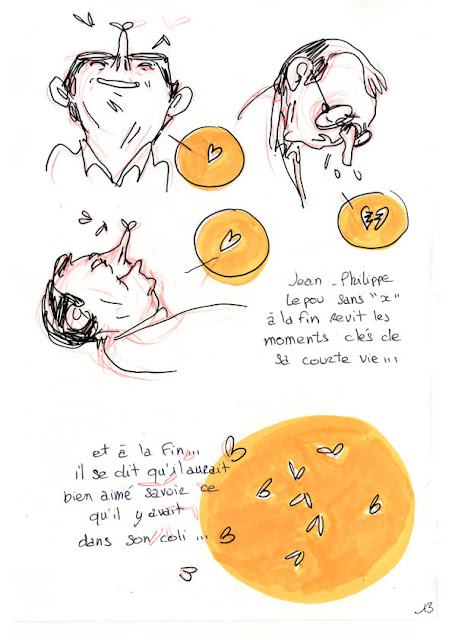 Jean-Philippe
Lepou sans "x"
à la fin revit les
moments clés de
sa courte vie...
et à la fin...
il se dit qu'il aurait
bien aimé savoir ce
qu'il y avait
dans son coli...
13